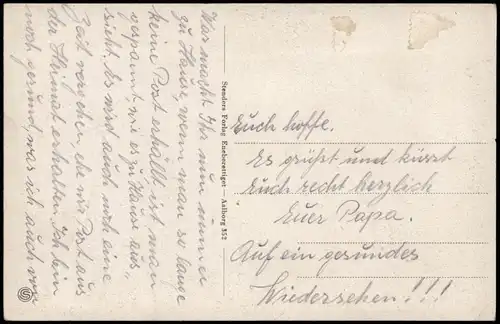 Was macht Ihr nun immer
zu Hause, wenn man so lange
keine Post erhält, ist man
gespannt, wie es zu Hause aus-
sieht. Es wird auch noch eine
Zeit vergehen, ehe wir Post aus
der Heimat erhalten. Ich bin
noch gesund, was ich auch von
Euch hoffe.
Es grüßt und küsst
Euch recht herzlich
Euer Papa.
Auf ein gesundes
Wiedersehen!!!
Stenders Forlag Eneberettiget - Aalborg 552
S